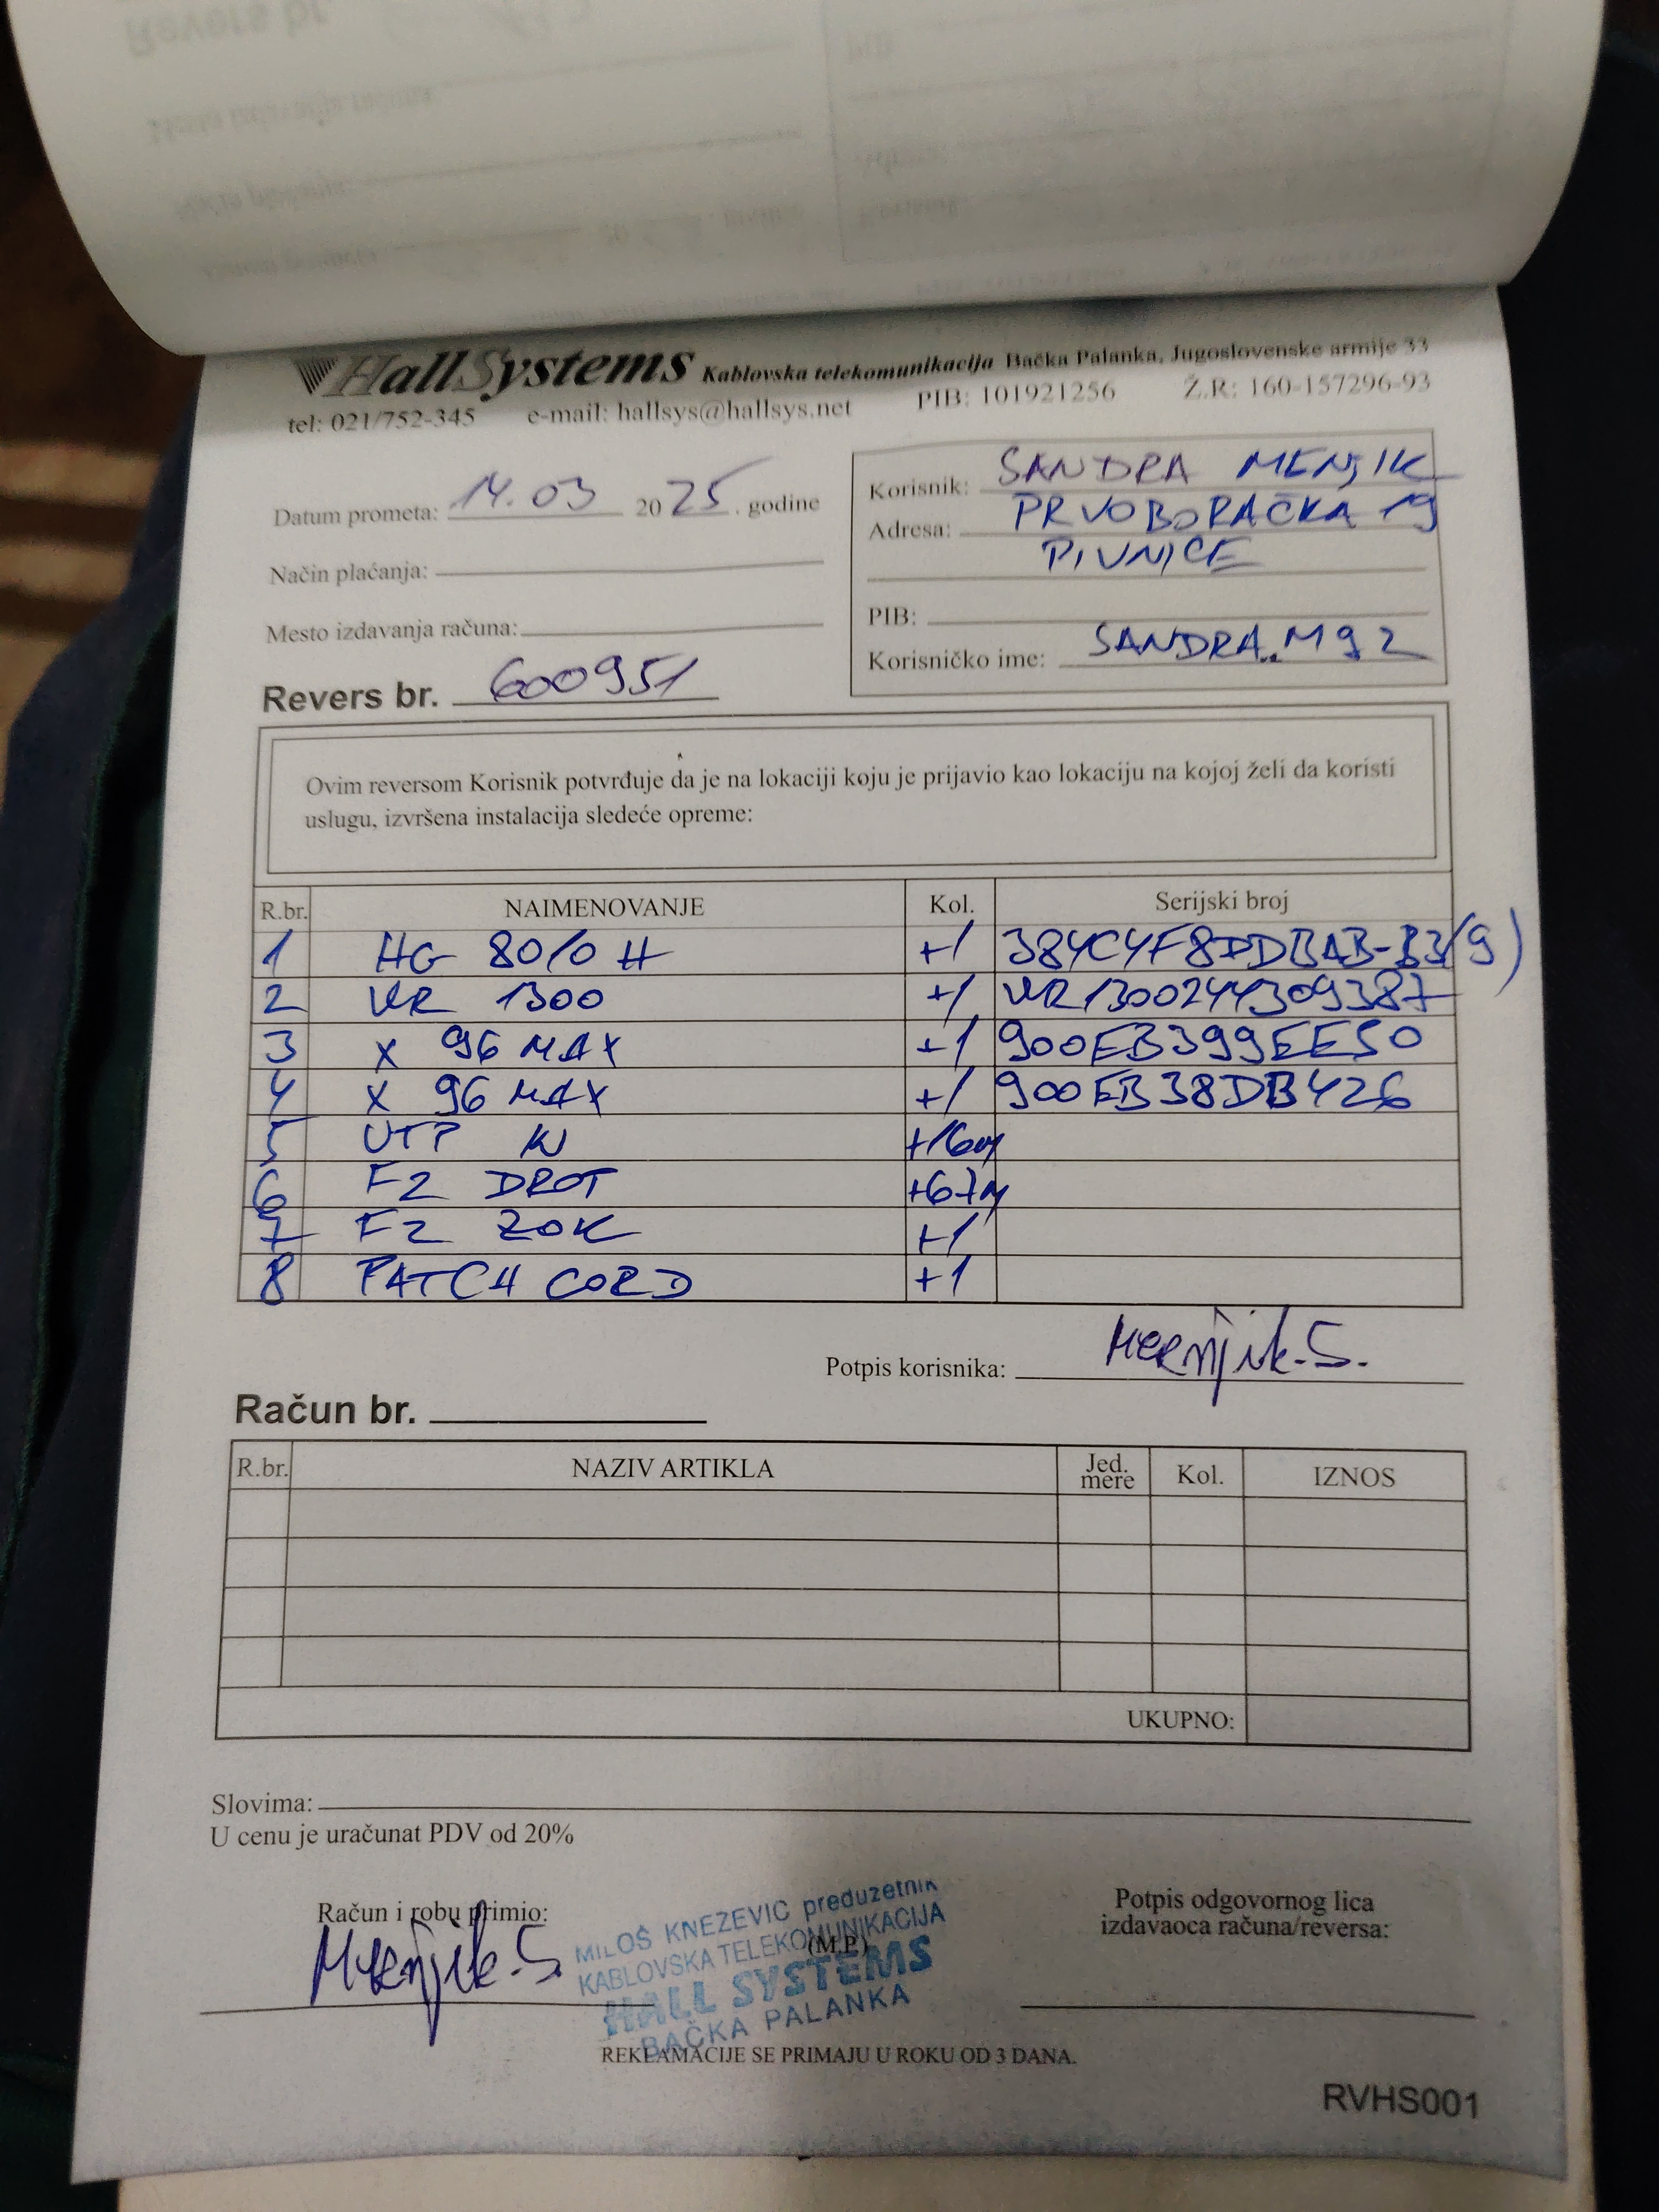 HallSystems Kablovska telekomunikacija Bačka Palanka, Jugoslovenske armije 33
tel: 021/752-345 e-mail: hallsys@hallsys.net PIB: 101921256 Ž.R: 160-157296-93
Datum prometa: 14.03 2025. godine
Način plaćanja:
Mesto izdavanja računa:
Revers br. 600951
Korisnik: SANDRA MENJIK
Adresa: PRVOBORAČKA 19
PIVNICE
PIB:
Korisničko ime: SANDRA..M92
Ovim reversom Korisnik potvrđuje da je na lokaciji koju je prijavio kao lokaciju na kojoj želi da koristi
uslugu, izvršena instalacija sledeće opreme:
R.br. NAIMENOVANJE Kol. Serijski broj
1 HG 8010 H +1 384C4F8DDBAB-B3(9)
2 VR 1300 +1 VR1300244309387
3 X 96 MAX +1 900EB399EE50
4 X 96 MAX +1 900EB38DB426
5 UTP N +16m
6 F2 DROT +67m
7 F2 ZOK +1
8 PATCH CORD +1
Potpis korisnika: Mernjik.S.
Račun br.
R.br. NAZIV ARTIKLA Jed. mere Kol. IZNOS
UKUPNO:
Slovima:
U cenu je uračunat PDV od 20%
Račun i robu primio:
Mernjik.S.
MILOŠ KNEZEVIC preduzetnik
KABLOVSKA TELEKOMUNIKACIJA
(M.P.)
HALL SYSTEMS
BAČKA PALANKA
Potpis odgovornog lica
izdavaoca računa/reversa:
REKLAMACIJE SE PRIMAJU U ROKU OD 3 DANA.
RVHS001